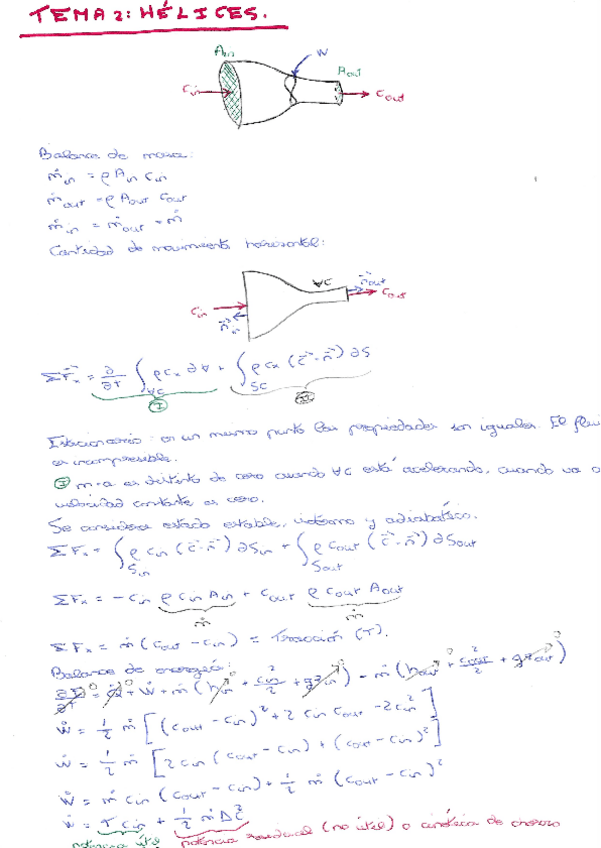 TEMA 2: HÉLICES.
Ain
W
Aout
Cin
Cout
Balance de masa:
ṁin = ρ Ain Cin
ṁout = ρ Aout Cout
ṁin = ṁout = ṁ
Cantidad de movimiento horizontal:
∀C
n⃗out
Cin
Cout
n⃗in
ΣF⃗x = ∂/∂T ∫∀C ρ Cx ∂∀ + ∫SC ρ Cx (C⃗·n⃗) ∂S
I
II
Estacionario: en un mismo punto las propiedades son iguales. El flui
es incompresible.
I m·a es distinto de cero cuando ∀C está acelerando, cuando va a
velocidad constante es cero.
Se considera estado estable, isotermo y adiabático.
ΣFx = ∫Sin ρ Cin (C⃗·n⃗) ∂Sin + ∫Sout ρ Cout (C⃗·n⃗) ∂Sout
ΣFx = -Cin ρ Cin Ain + Cout ρ Cout Aout
ṁ ṁ
ΣFx = ṁ (Cout - Cin) = Tracción (T).
Balance de energía:
∂E/∂T = Q̇ + Ẇ + ṁ (hin + Cin²/2 + gzin) - ṁ (hout + Cout²/2 + gzout)
Ẇ = 1/2 ṁ [(Cout - Cin)² + 2 Cin Cout - 2Cin²]
Ẇ = 1/2 ṁ [2 Cin (Cout - Cin) + (Cout - Cin)²]
Ẇ = ṁ Cin (Cout - Cin) + 1/2 ṁ (Cout - Cin)²
Ẇ = T Cin + 1/2 ṁ ΔC²
potencia útil potencia residual (no útil) o cinética de chorro